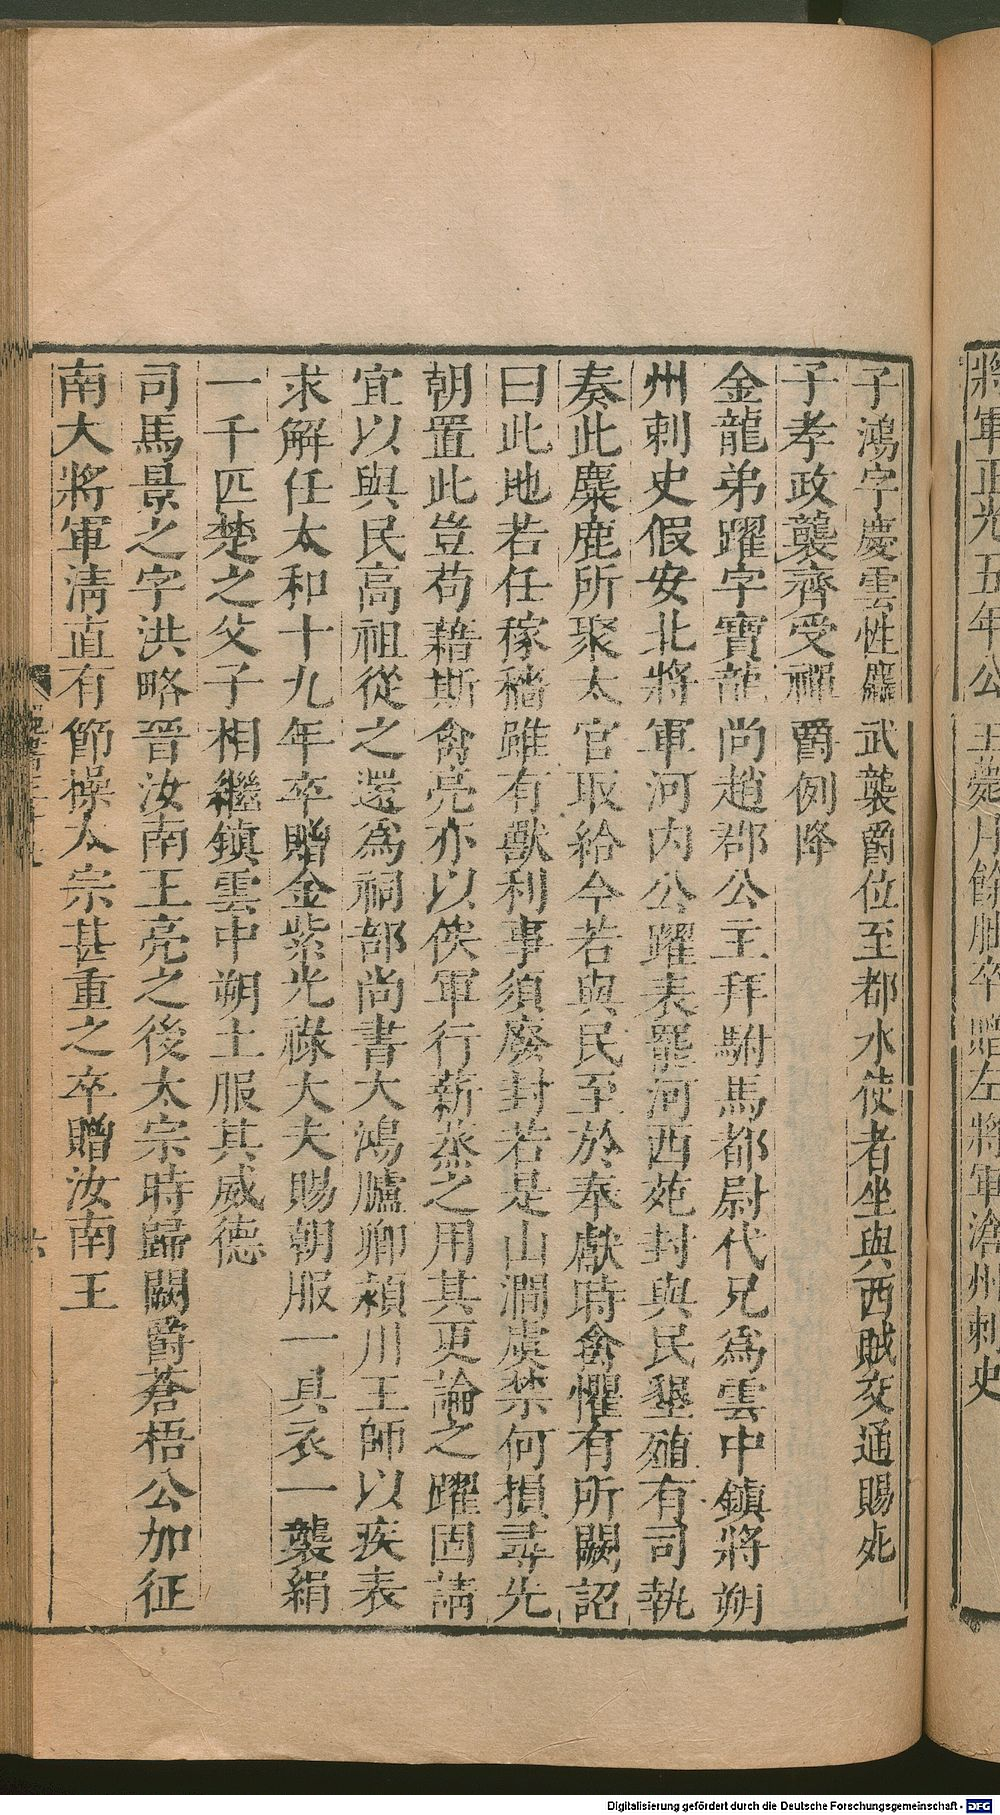 將軍正光五年公主薨月餘朏卒贈左將軍滄州刺史
子鴻字慶雲性麤武襲爵位至都水使者坐與西賊交通賜死
子孝政襲齊受禪爵例降
金龍弟躍字寶龍尚趙郡公主拜駙馬都尉代兄爲雲中鎮將朔
州刺史假安北將軍河内公躍表罷河西苑封與民墾殖有司執
奏此麋鹿所聚太官取給今若與民至於奉獻時禽懼有所闕詔
曰此地若任稼穡雖有獸利事須廢封若是山澗虞禁何損尋先
朝置此豈苟藉斯禽亮亦以俟軍行薪蒸之用其更論之躍固請
宜以與民高祖從之還爲祠部尚書大鴻臚卿潁川王師以疾表
求解任太和十九年卒贈金紫光祿大夫賜朝服一具衣一襲絹
一千匹楚之父子相繼鎮雲中朔土服其威德
司馬景之字洪略晉汝南王亮之後太宗時歸闕爵蒼梧公加征
南大將軍淸直有節操太宗甚重之卒贈汝南王
Digitalisierung gefördert durch die Deutsche Forschungsgemeinschaft - DFG